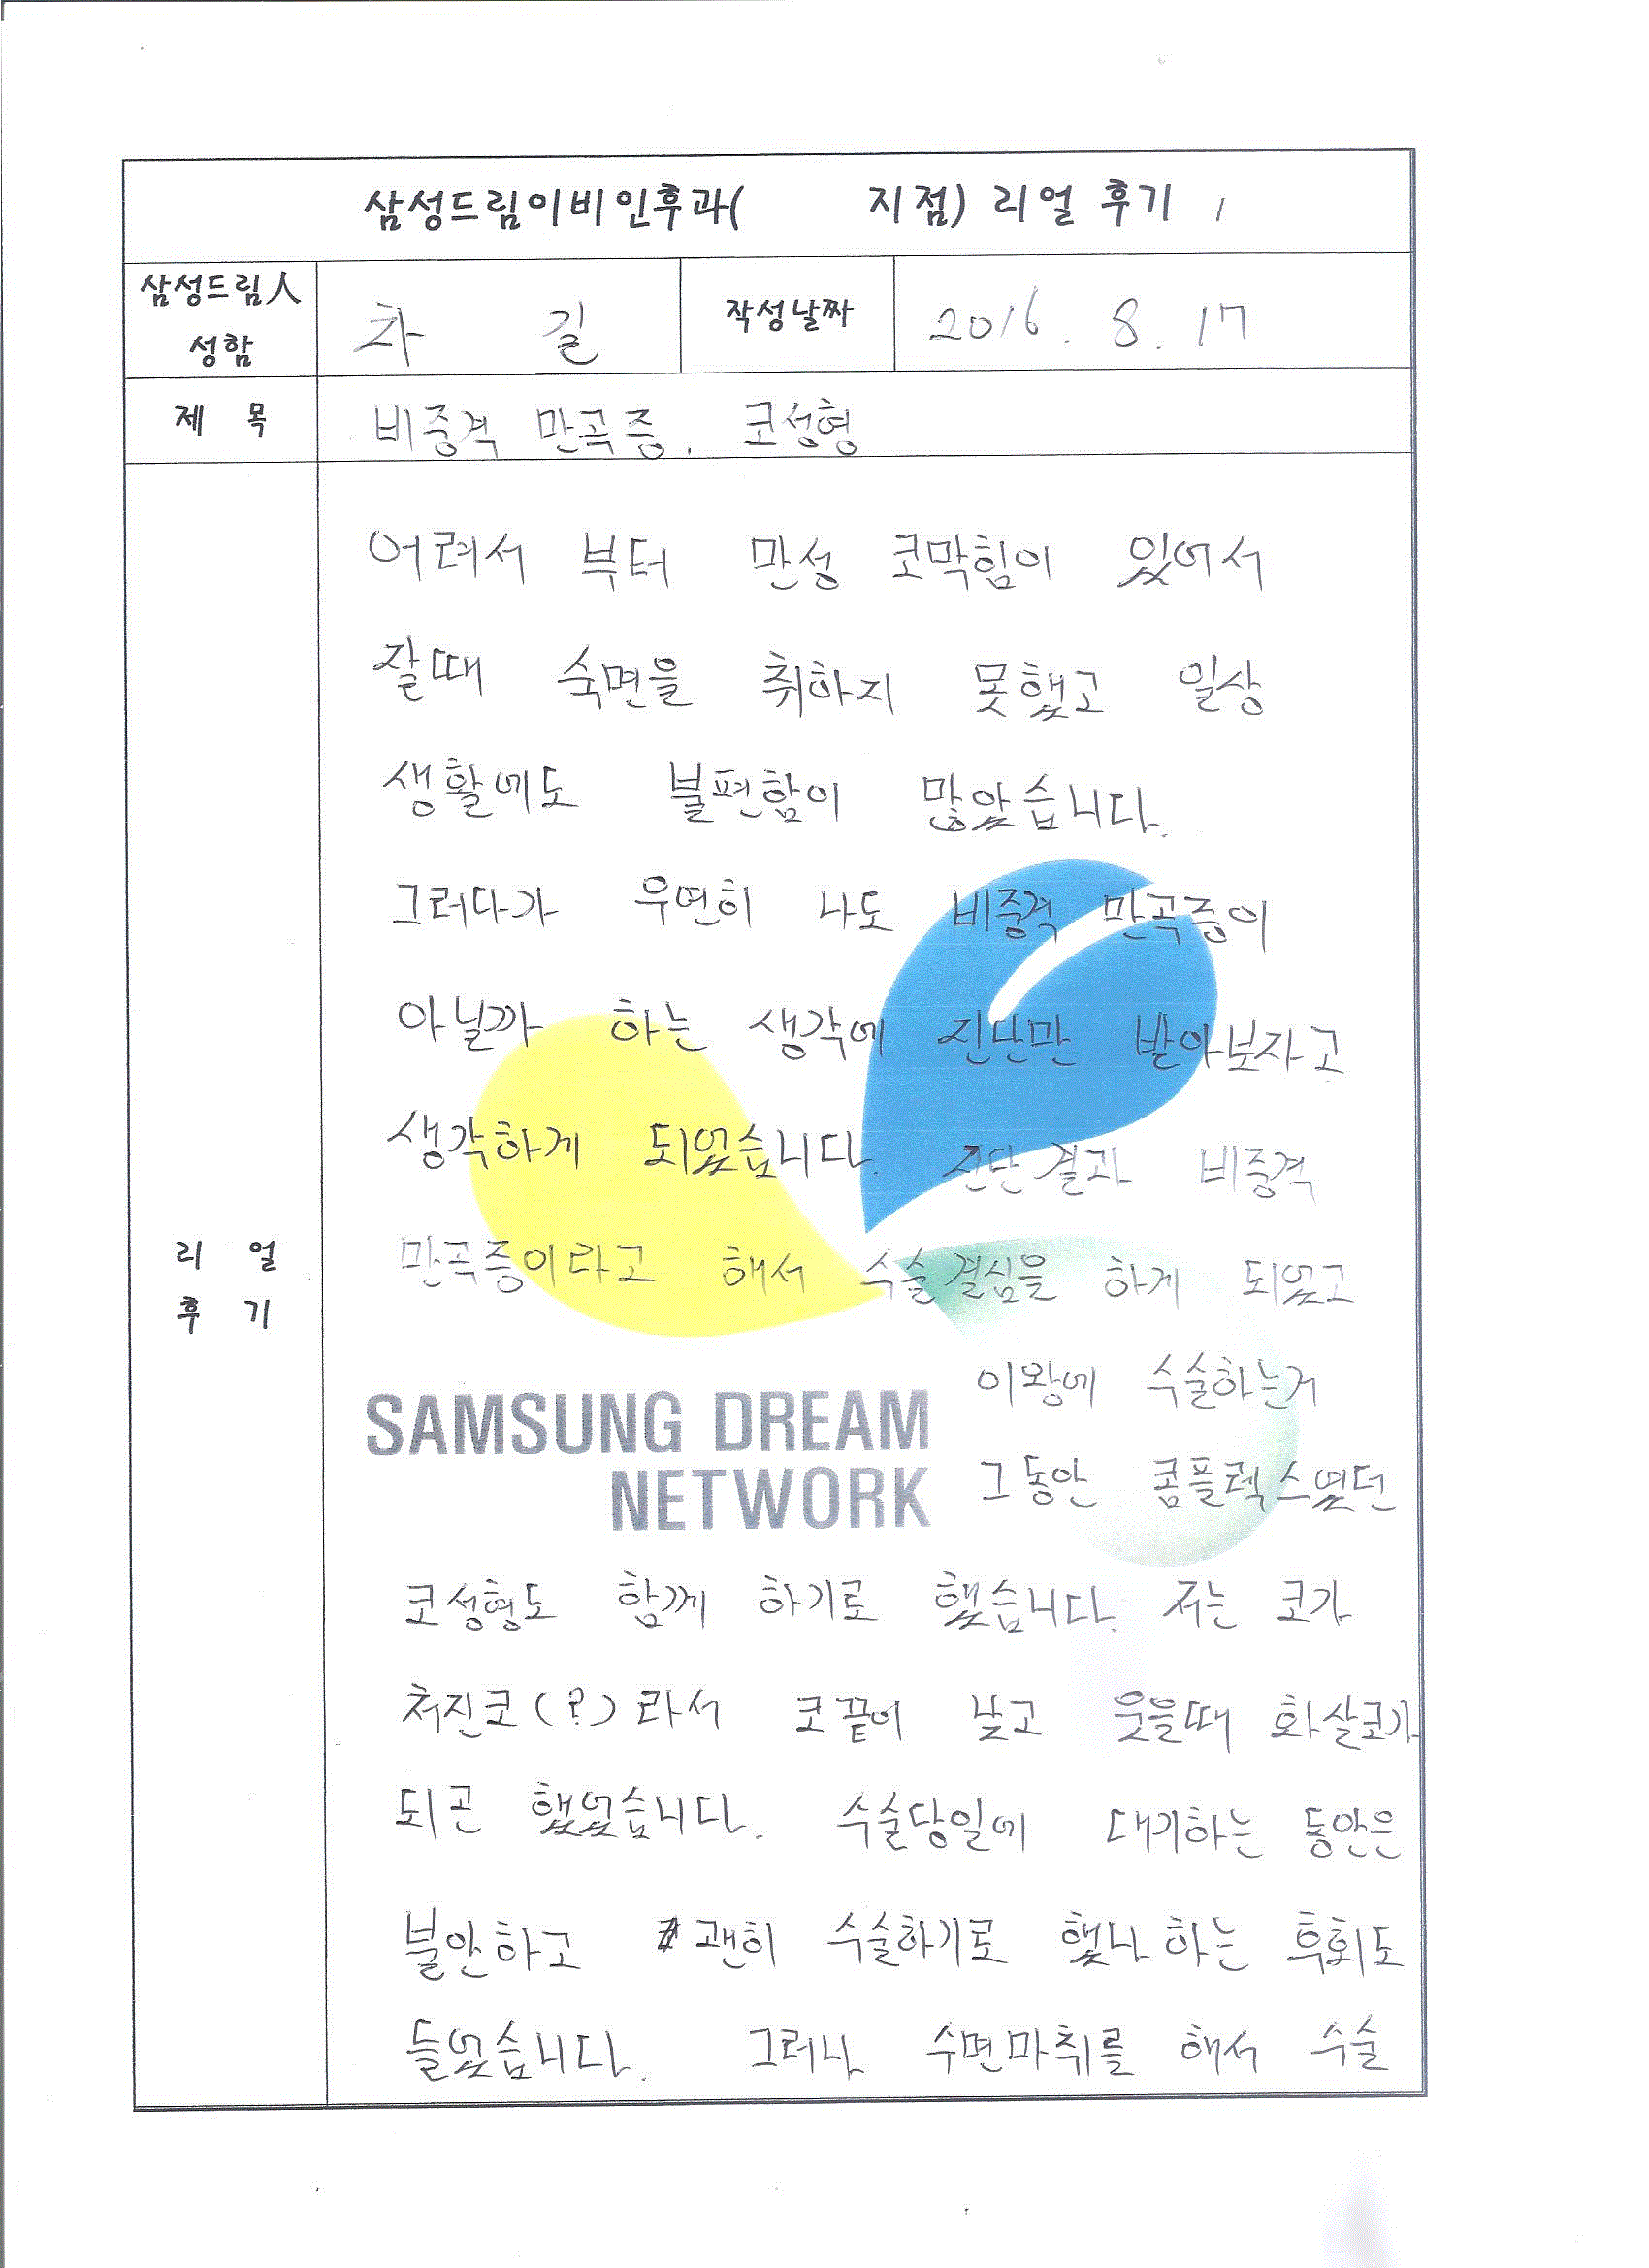 삼성드림이비인후과(        지점) 리얼 후기 1
삼성드림人
성함
차 길
작성날짜
2016. 8. 17
제 목
비중격 만곡증. 코성형
리 얼
후 기
어려서 부터 만성 코막힘이 있어서
잘때 숙면을 취하지 못했고 일상
생활에도 불편함이 많았습니다.
그러다가 우연히 나도 비중격 만곡증이
아닐까 하는 생각에 진단만 받아보자고
생각하게 되었습니다. 진단결과 비중격
만곡증이라고 해서 수술결심을 하게 되었고
이왕에 수술하는거
그동안 콤플렉스였던
SAMSUNG DREAM
NETWORK
코성형도 함께 하기로 했습니다. 저는 코가
처진코(?)라서 코끝이 낮고 웃을때 화살코가
되곤 했었습니다. 수술당일에 대기하는 동안은
불안하고 괜히 수술하기로 했나 하는 후회도
들었습니다. 그러나 수면마취를 해서 수술